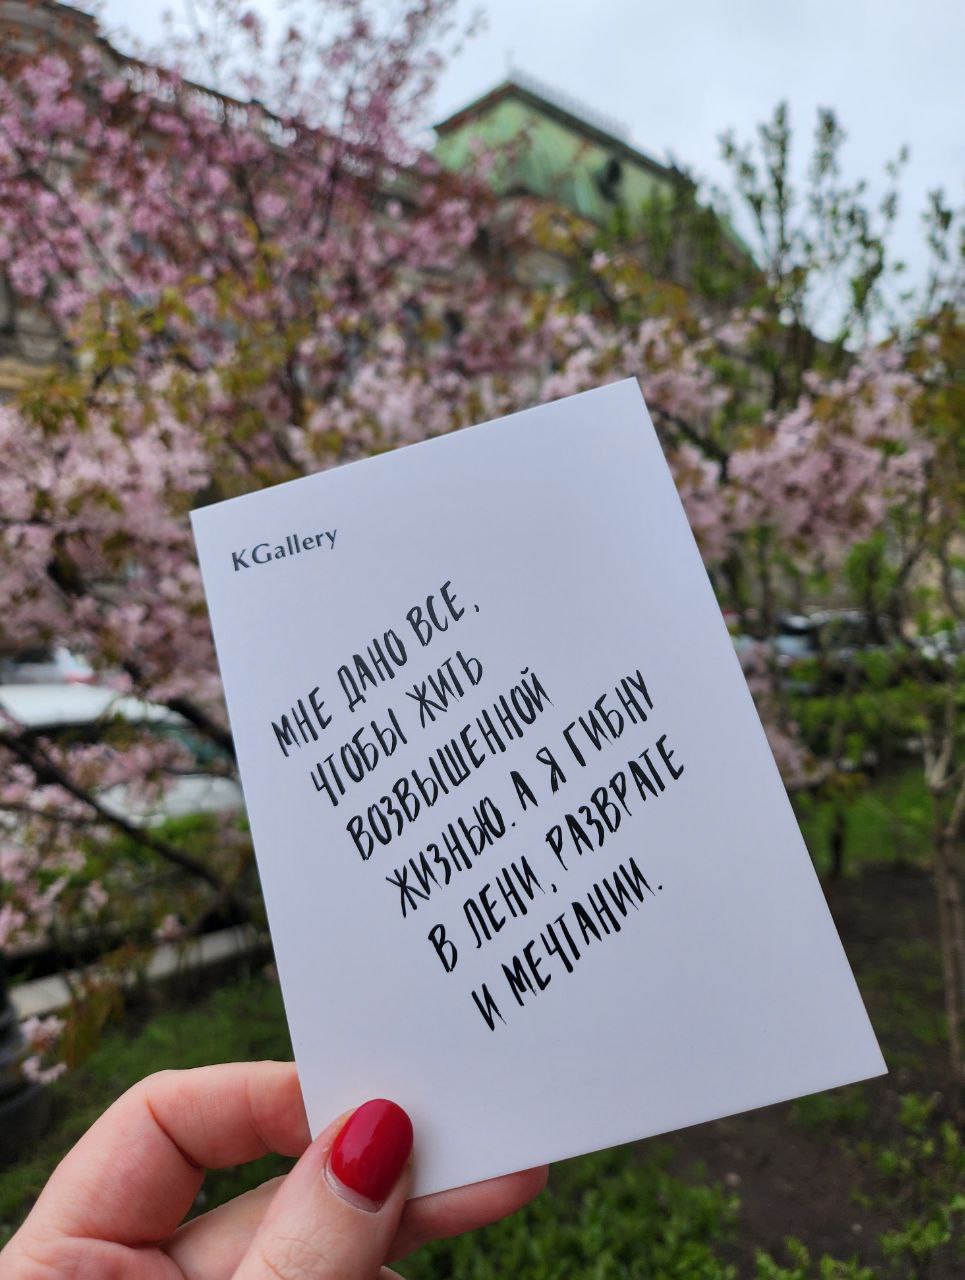 KGallery
МНЕ ДАНО ВСЕ,
ЧТОБЫ ЖИТЬ
ВОЗВЫШЕННОЙ
ЖИЗНЬЮ. А Я ГИБНУ
В ЛЕНИ, РАЗВРАТЕ
И МЕЧТАНИИ.